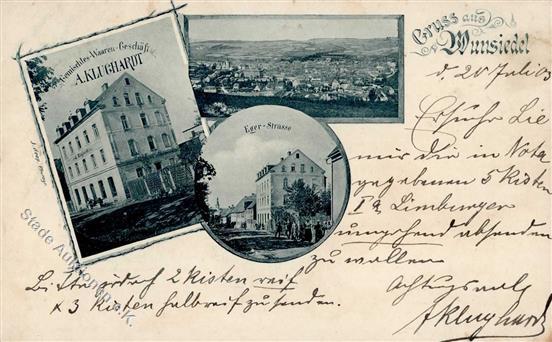 Gemischtes-Waaren-Geschäft
A. KLUGHARDT
Eger-Strasse
Gruss aus
Wunsiedel
d. 20 Juli 03
Ersuche Sie
mir die in Nota
gegebenen 5 Kisten
Ia Limburger
umgehend absenden
zu wollen
Achtungsvoll
A Klughardt
2 Kisten reif
& 3 Kisten halbreif zu senden.
Stade Auktionen e.K.